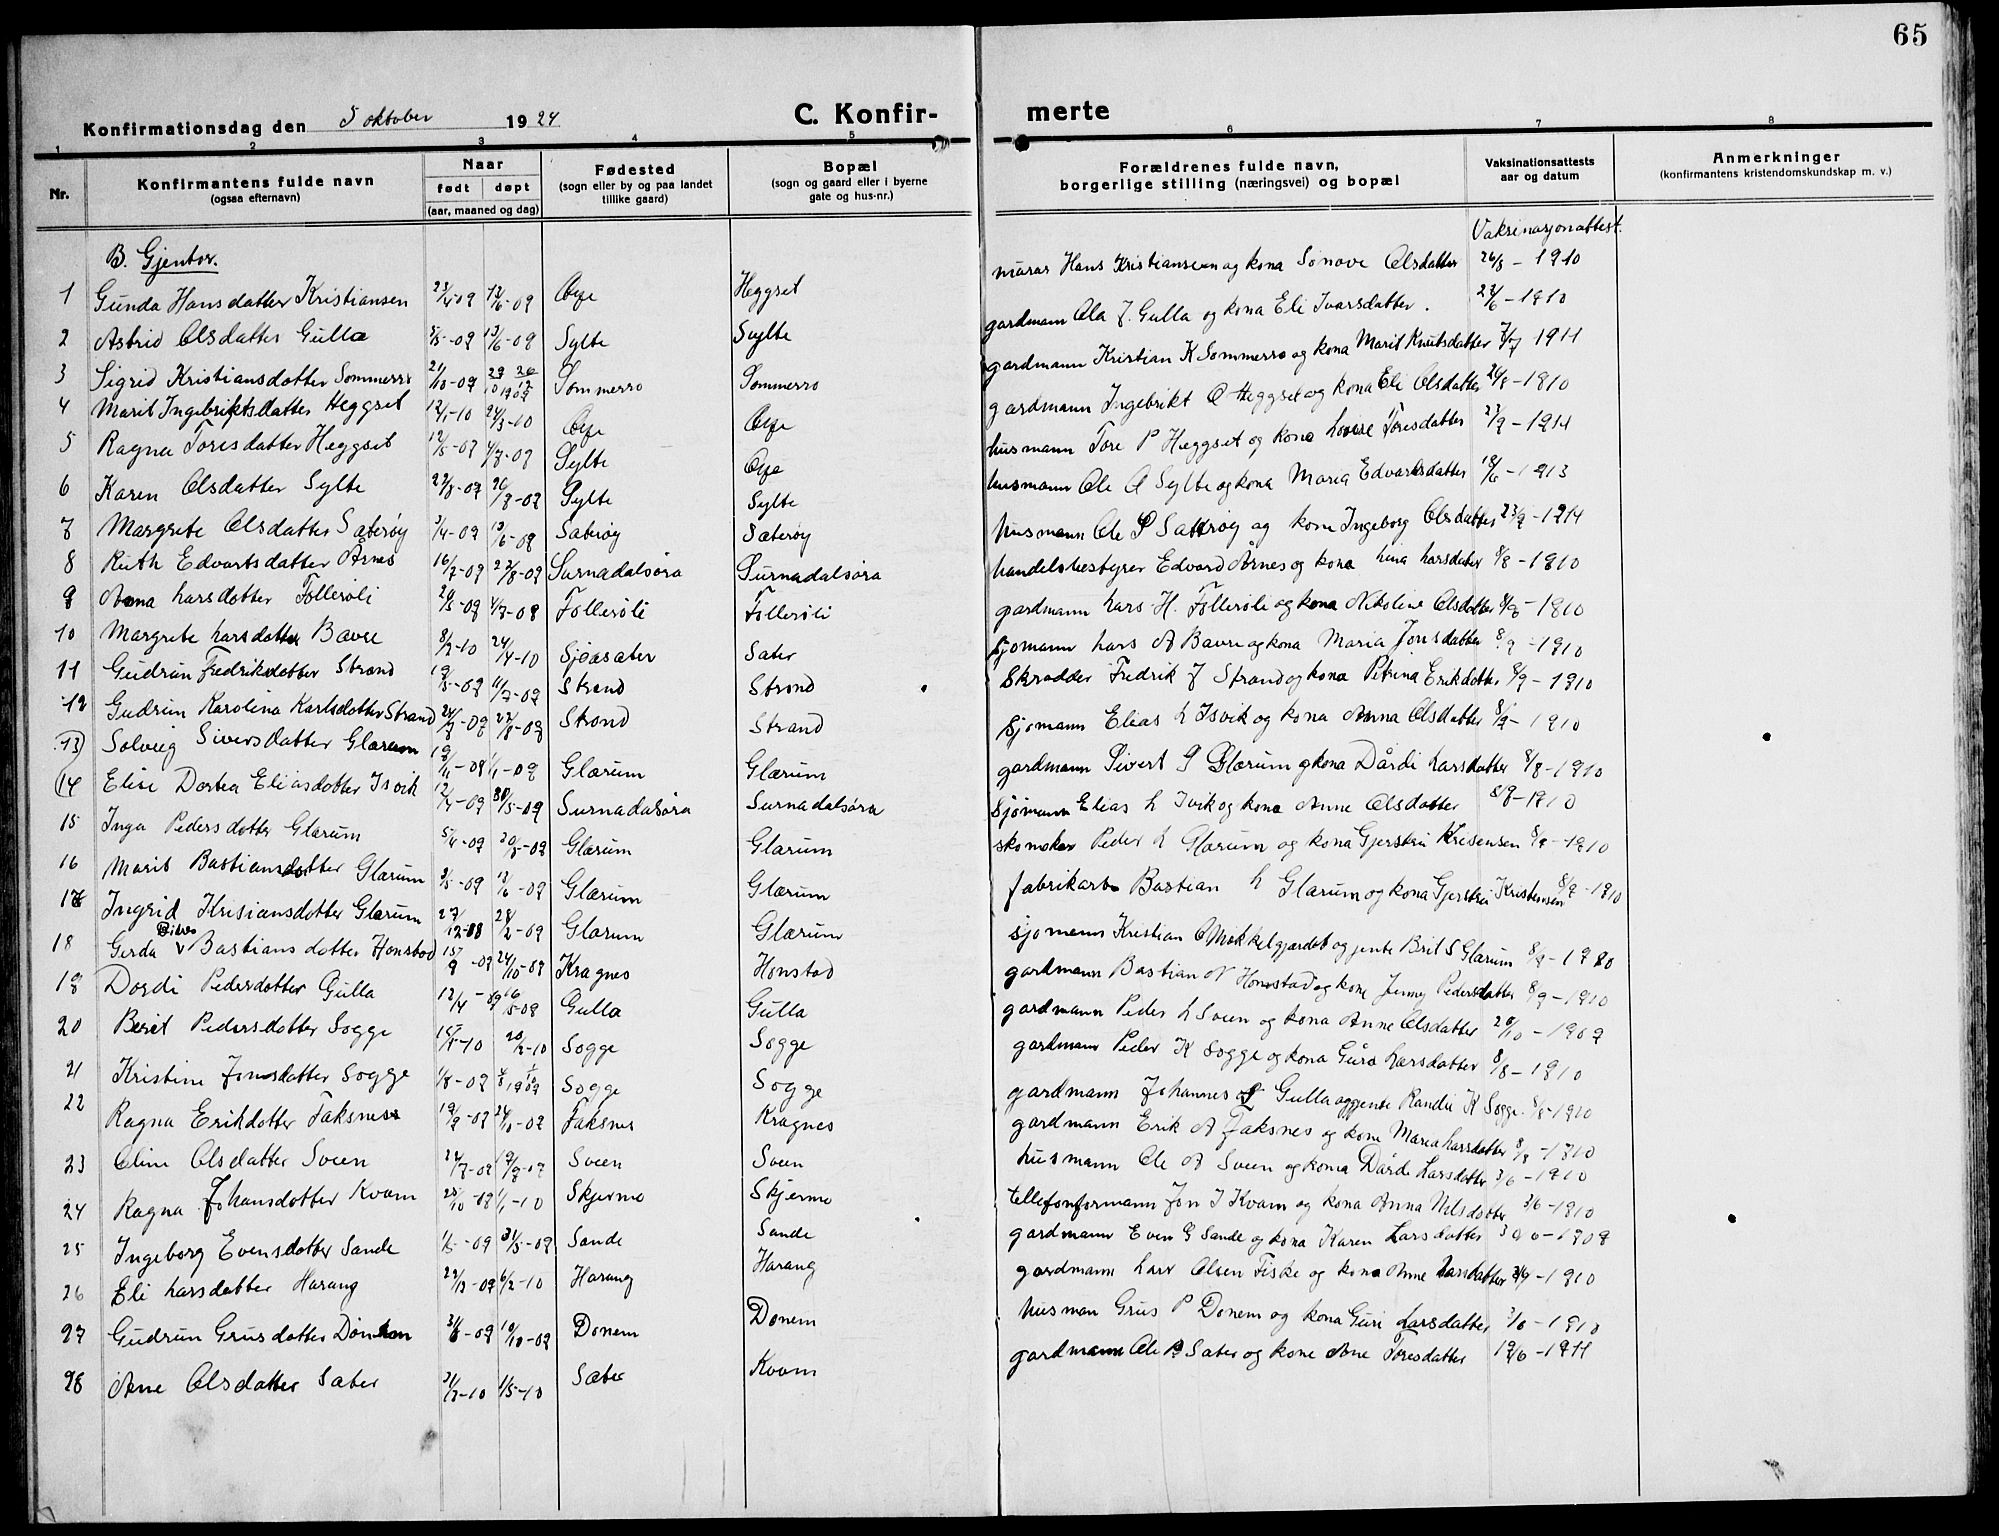 65
Konfirmationsdag den 5 oktober 1924
C. Konfir-
merte
1 2 3 4 5 6 7 8
Nr.
Konfirmantens fulde navn
(ogsaa efternavn)
Naar
født døpt
(aar, maaned og dag)
Fødested
(sogn eller by og paa landet
tillike gaard)
Bopæl
(sogn og gaard eller i byerne
gate og hus-nr.)
Forældrenes fulde navn,
borgerlige stilling (næringsvei) og bopæl
Vaksinationsattests
aar og datum
Anmerkninger
(konfirmantens kristendomskundskap m. v.)
Vaksinasjonattest.
B. Gjentor.
1 Gunda Hansdatter Kristiansen 23/4-09 12/6-09 Øye Heggset murar Hans Kristiansen og kona Sønove Olsdatter 26/8-1910
2 Astrid Olsdatter Gulla 5/5-09 13/6-09 Sylte Sylte gardmann Ola J. Gulla og kona Eli Ivarsdatter. 22/6-1910
3 Sigrid Kristiansdatter Sommerro 21/10-09 Sommerro Sommerro gardmann Kristian K Sommerro og kona Marit Knutsdatter 7/7 1911
4 Marit Ingebriktsdatter Heggset 12/1-10 24/3-10 Øye Øye gardmann Ingebrikt O Heggset og kona Eli Olsdatter 26/8-1910
5 Ragna Toresdatter Heggset 12/5-09 4/7-09 Sylte Øye husmann Tore P Heggset og kona Lovise Toresdatter 23/9-1914
6 Karen Olsdatter Sylte 22/8-09 26/9-09 Sylte Sylte husmann Ole A Sylte og kona Maria Edvardsdatter 18/6-1913
7 Margrete Olsdatter Sæterøy 3/4-09 13/6-09 Sæterøy Sæterøy husmann Ole P Sæterøy og kona Ingeborg Olsdatter 23/9-1914
8 Ruth Edvartsdatter Årnes 16/7-09 22/8-09 Surnadalsøra Surnadalsøra handelsbestyrer Edvard Årnes og kona Lina Larsdatter 8/8-1910
9 Anna Larsdotter Tollerøli 29/5-09 4/7-09 Tollerøli Tollerøli gardmann Lars H. Tollerøli og kona Nikoline Olsdatter 8/8-1910
10 Margrete Larsdotter Bævre 8/2-10 24/4-10 Sjøasæter Sæter sjømann Lars A Bævre og kona Maria Jonsdatter 8/9-1910
11 Gudrun Fredriksdotter Strand 19/5-09 11/7-09 Strand Strand Skradder Fredrik J Strand og kona Petrina Erikdotter 8/9-1910
12 Gudrun Karolina Karlsdotter Strand 24/7-09 22/8-09 Strand Strand sjømann Elias L Isvik og kona Anna Olsdatter 8/9-1910
13 Solveig Siversdatter Glærum Glærum Glærum gardmann Sivert S Glærum og kona Dårdi Larsdatter 8/8-1910
14 Elise Dortea Eliasdotter Isvik 12/4-09 30/5-09 Surnadalsøra Surnadalsøra sjømann Elias L Isvik og kona Anne Olsdotter 8/8-1910
15 Inga Pedersdotter Glærum 5/4-09 20/5-09 Glærum Glærum skomaker Peder L Glærum og kona Gjertru Kristensen 8/9-1910
16 Marit Bastiansdotter Glærum 3/5-09 13/6-09 Glærum Glærum fabrikarb Bastian L Glærum og kona Gjertru Kristensen 8/9-1910
17 Ingrid Kristiansdotter Glærum 27/12-08 28/2-09 Glærum Glærum sjømann Kristian O Møkkelgjærdet og jente Brit S Glærum 8/9-1910
18 Gerda Bastiansdotter Honstad 15/9-09 24/10-09 Kragnes Honstad gardmann Bastian N Honstad og kona Jenny Pedersdatter 8/9-1910
19 Dordi Pedersdotter Gulla 12/4-09 16/5-09 Gulla Gulla gardmann Peder L Sveen og kona Anne Olsdatter 20/10-1909
20 Berit Pedersdotter Sogge 15/1-10 20/2-10 Sogge Sogge gardmann Peder K Sogge og kona Guro Larsdatter 8/8-1910
21 Kristine Jonsdatter Sogge 1/8-09 Sogge Sogge gardmann Johannes Gulla og jente Randi K Sogge 8/8-1910
22 Ragna Erikdotter Faksnes 19/9-09 24/10-09 Faksnes Kragnes gardmann Erik A Faksnes og kone Maria Larsdotter 8/8-1910
23 Oline Olsdatter Sveen 24/7-09 19/9-09 Sveen Sveen husmann Ole A Sveen og kona Dårdi Larsdotter 3/6-1910
24 Ragna Johansdotter Kvam 28/10-09 1/1-10 Skjermo Skjermo tellefonformann Jon I Kvam og kona Anna Nilsdotter 3/6-1910
25 Ingeborg Evensdotter Sande 1/5-09 31/5-09 Sande Sande gardmann Even G Sande og kona Karen Larsdatter 30/6-1909
26 Eli Larsdotter Harang 6/2-10 Harang Harang gardmann Lars Olsen Fiske og kona Anne Larsdatter 3/9-1910
27 Gudrun Grusdotter Dønem 31/8-09 10/10-09 Dønem Dønem husman Grus P Dønem og kona Guri Larsdatter 3/6-1910
28 Ane Olsdatter Sæter 31/3-10 1/5-10 Sæter Kvam gardmann Ole P Sæter og kone Ane Toresdatter 19/6-1911